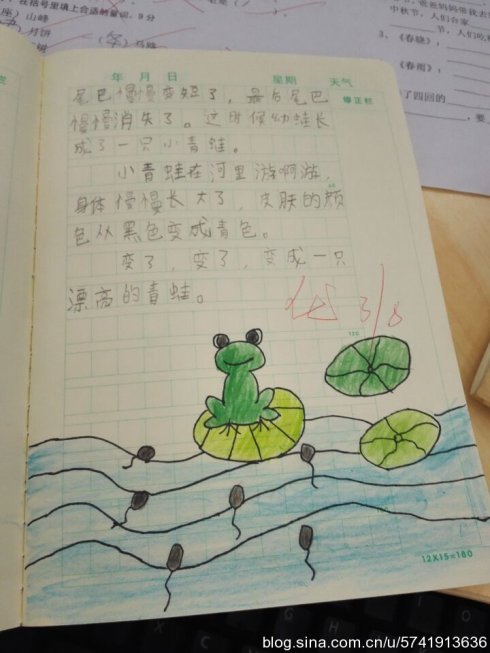 在括号里填上合适的量词。9分
(座)山峰
月饼
(条)
中秋节，人们
节，人们
3、《春晓》，
《春雨》，
了四回的
年 月 日 星期 天气
尾巴慢慢变短了，最后尾巴
修正栏
慢慢消失了。这时候幼蛙长
成了一只小青蛙。
小青蛙在河里游啊游，
身体慢慢长大了，皮肤的颜
色从黑色变成青色。
变了，变了，变成一只
漂高的青蛙。
优 3/8
120
12X15=180
blog.sina.com.cn/u/5741913636